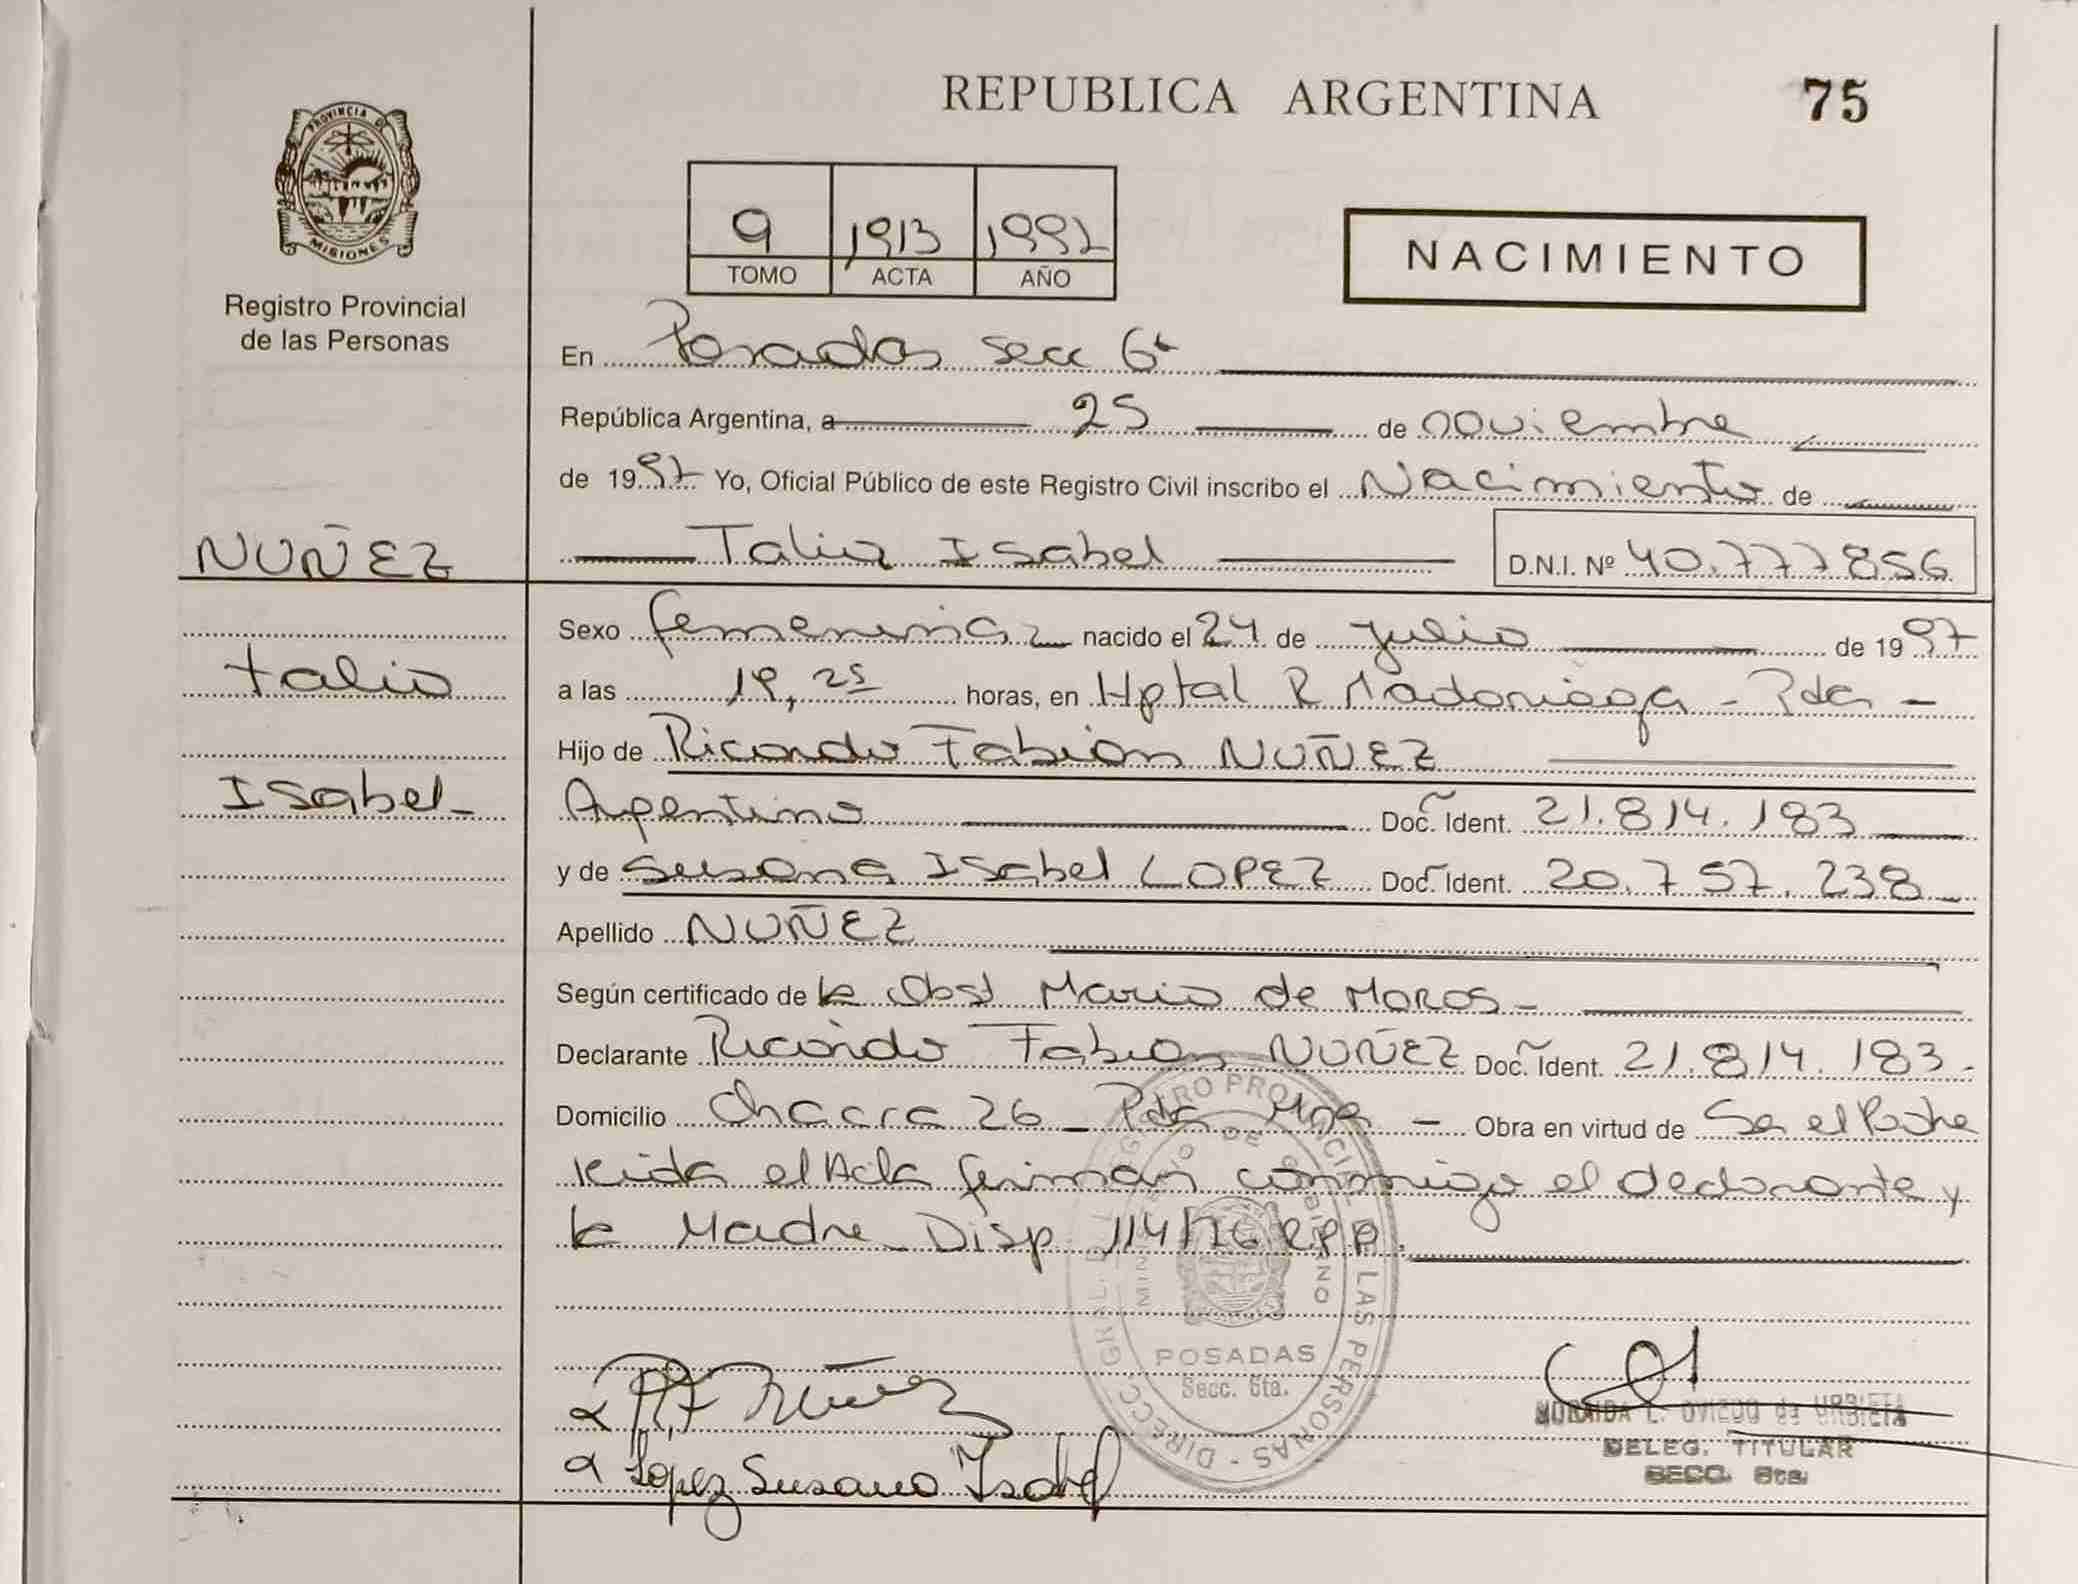 REPUBLICA ARGENTINA 75
PROVINCIA DE
MISIONES
Registro Provincial
de las Personas
9 1913 1997
TOMO ACTA AÑO
NACIMIENTO
En Posadas Secc 6a
República Argentina, a 25 de noviembre
de 1997 Yo, Oficial Público de este Registro Civil inscribo el Nacimiento de
Talia Isabel D.N.I. Nº 40.777856
NUÑEZ
Talia
Isabel-
Sexo femenina nacido el 24 de julio de 1997
a las 19,25 horas, en Hptal R Madariaga - Pdas -
Hijo de Ricardo Fabian NUÑEZ
Argentino Doc. Ident. 21.814.183
y de Susana Isabel LOPEZ Doc. Ident. 20.757.238
Apellido NUÑEZ
Según certificado de la Obst Maria de MOROS-
Declarante Ricardo Fabian NUÑEZ Doc. Ident. 21.814.183-
Domicilio Chacra 26 - Pdas Mnes - Obra en virtud de Ser el Padre
leida el Acta firman conmigo el declarante y
la Madre Disp 114/76 RPP.
DIRECC. GRAL. REGISTRO PROVINCIAL DE LAS PERSONAS
MINISTERIO DE GOBIERNO
POSADAS
Secc. 6ta.
R F Núñez
Lopez Susana Isabel
L. OVIEDO de URBIETA
DELEG. TITULAR
SECC. 6ta.